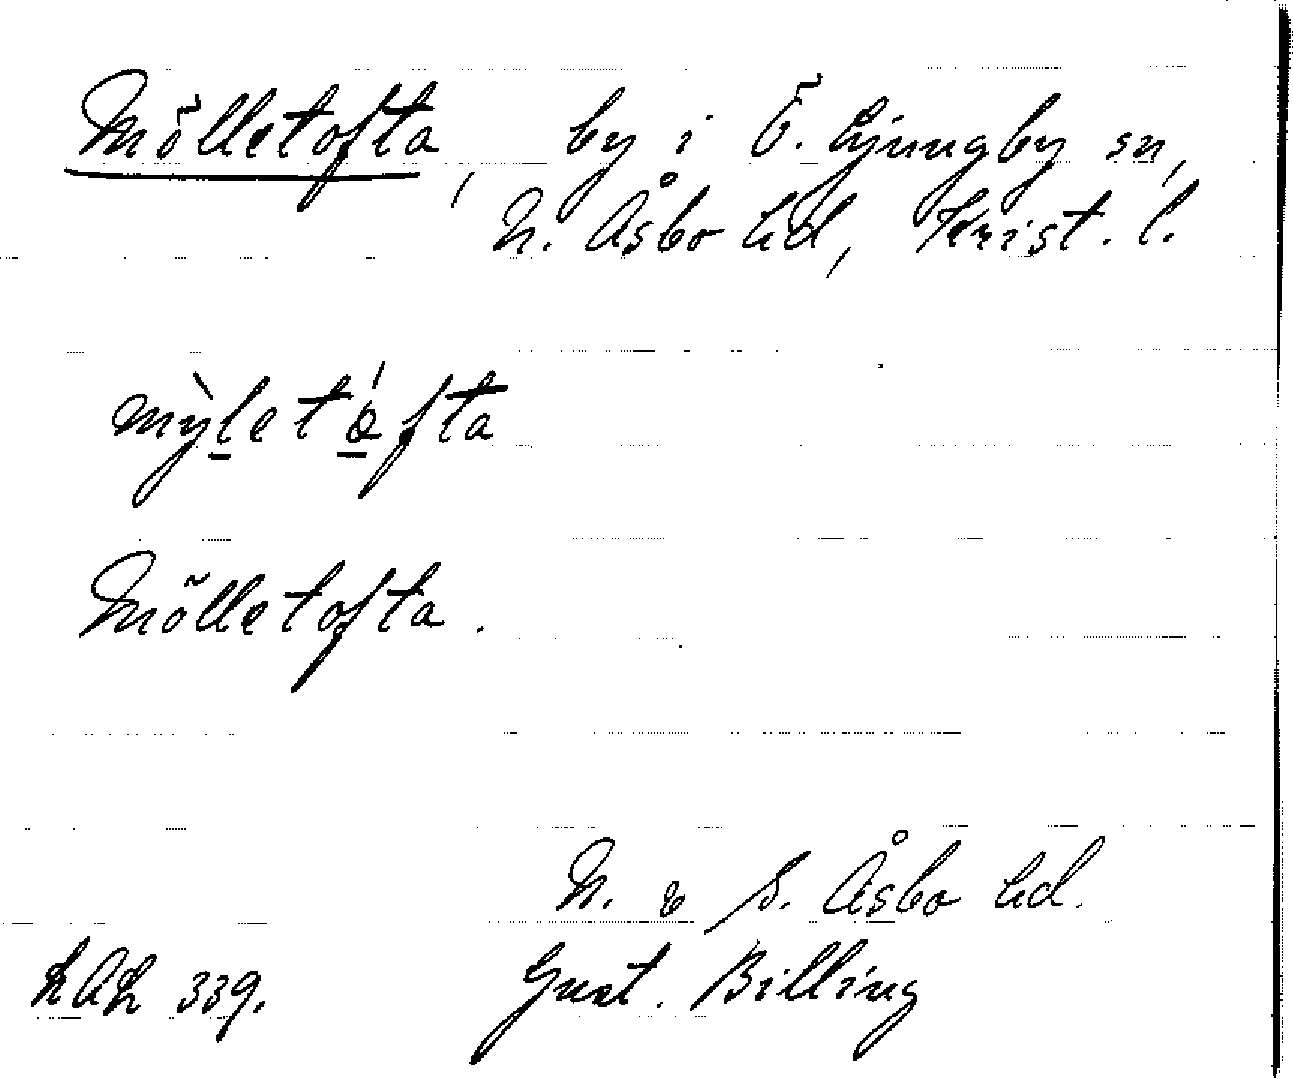 Mölletofta, by i Ö. Ljungby sn,
N. Åsbo hd, Krist. l.
mỳletǿfta
Mölletofta.
N. & S. Åsbo hd.
339. Gust. Billing